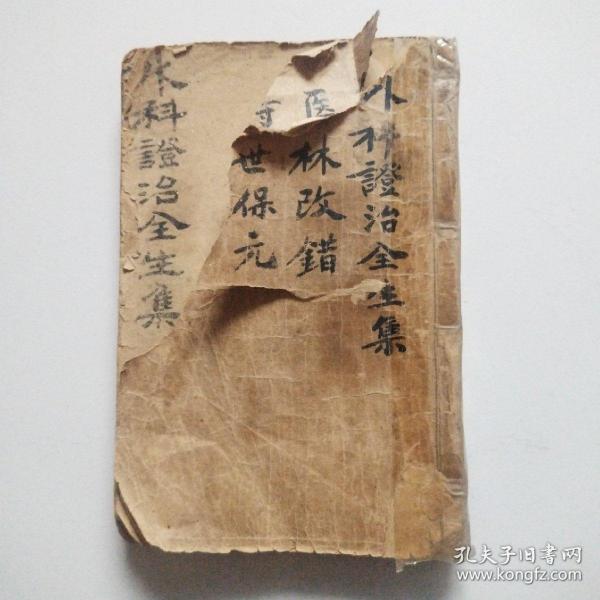 外科證治全生集
医林改錯
寿世保元
外科證治全生集
孔夫子旧書网
www.kongfz.com